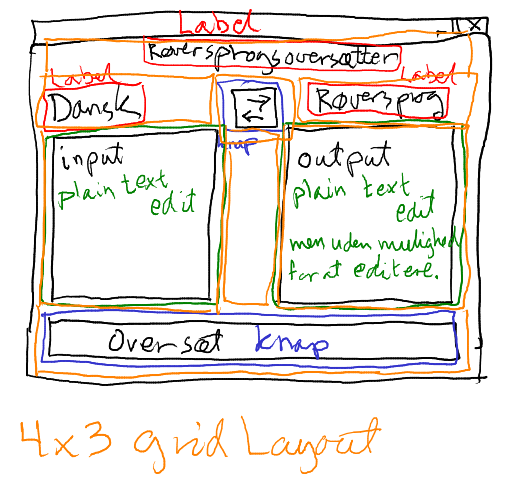 Label
X
Røversprogsoversætter
Label
Label
Dansk
Røversprog
knap
input
plain text
edit
output
plain text
edit
men uden mulighed
for at editere.
Oversæt knap
4x3 grid Layout